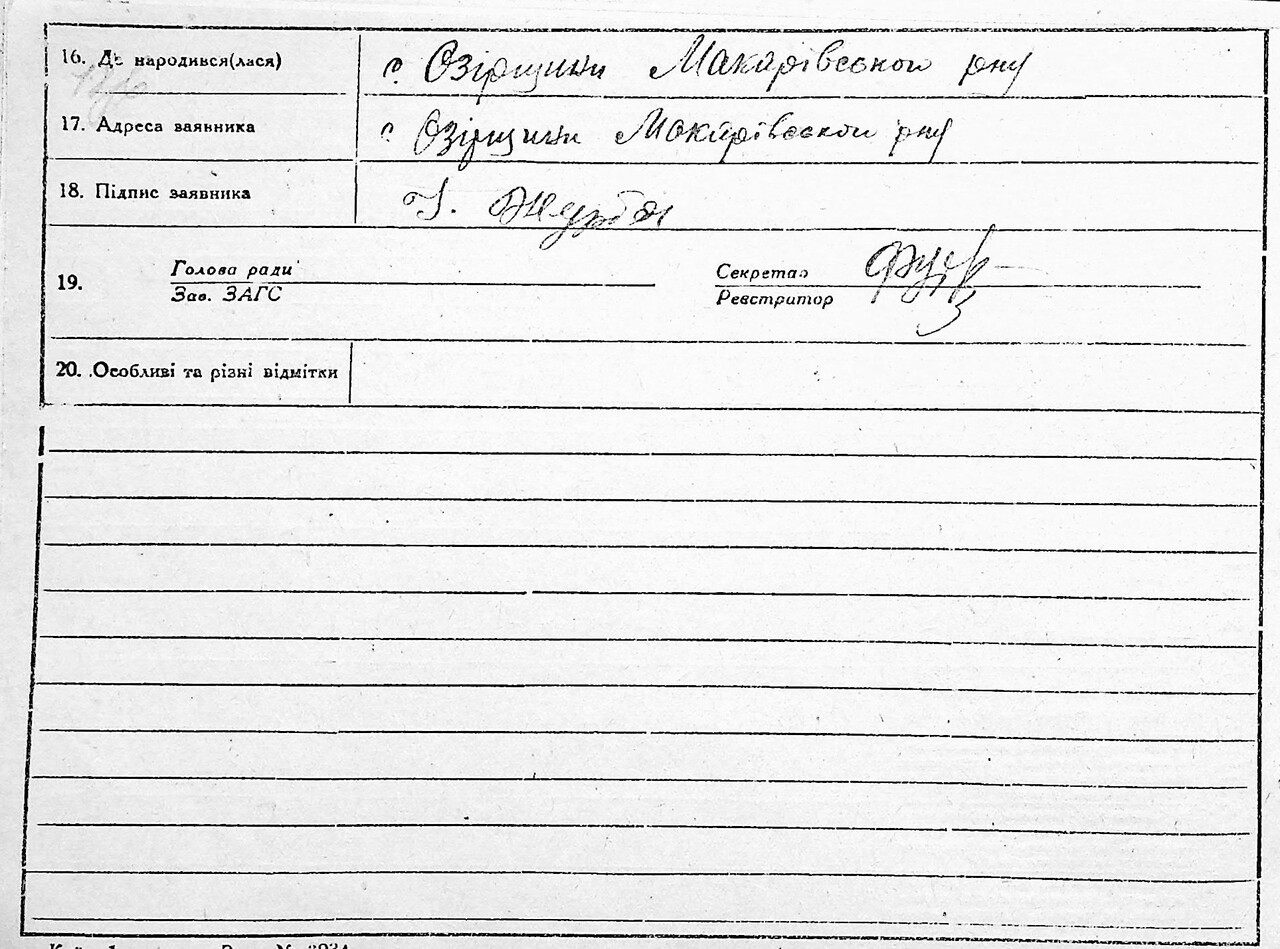 16. Де народився(лася) с. Озірщини Макарівської р-ну
17. Адреса заявника с Озірщини Макарівської р-ну
18. Підпис заявника
19. Голова ради Секретар
Зав. ЗАГС Реєстритор
20. Особливі та різні відмітки